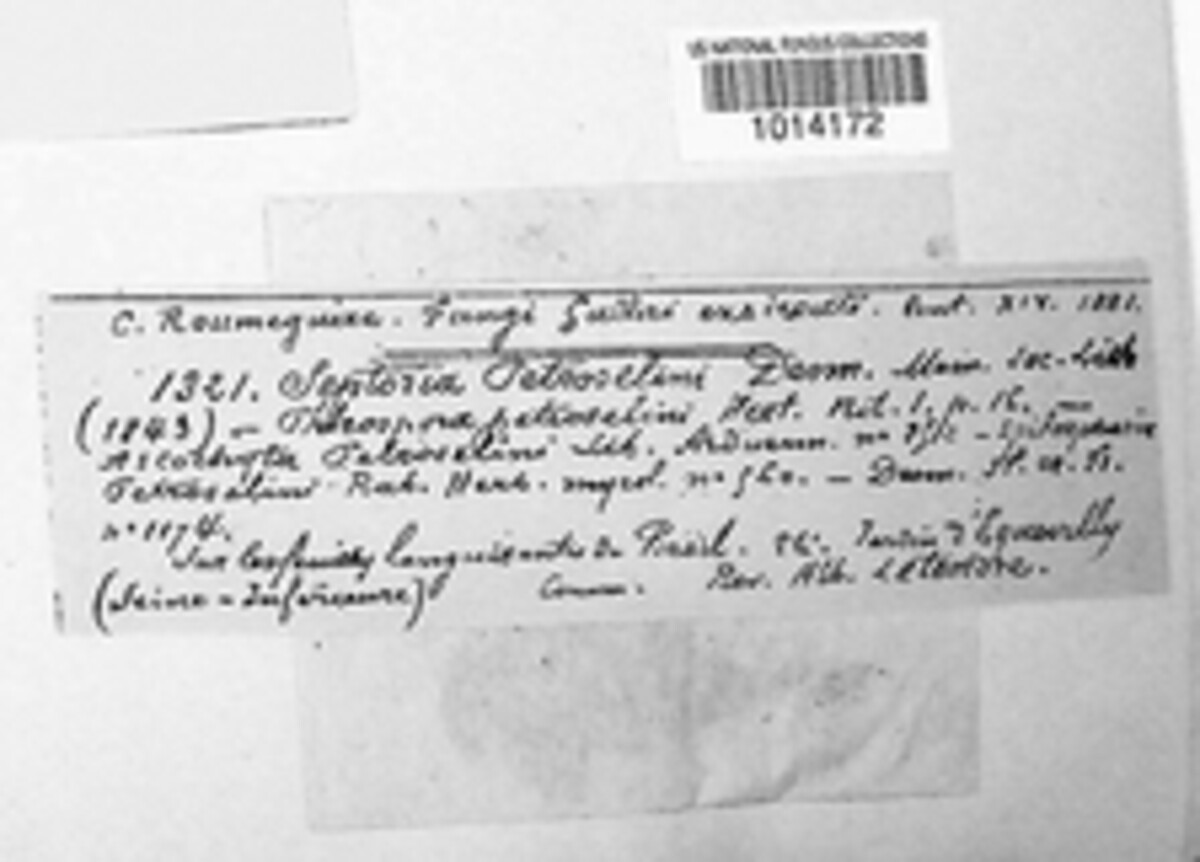 US NATIONAL FUNGUS COLLECTIONS
1014172
C. Roumeguère. Fungi Gallici exsiccati. Cent. XIV. 1881.
1321. Septoria Petroselini Desm. Mém. Soc. Lille
(1843) — petroselini West. p. 12. —
Ascochyta Petroselini Lib. Arduenn. n°
Petroselini Rab. Herb. mycol. n° 540. — Desm. Pl. cr. Fr.
n° 1174.
Sur les feuilles languissantes du Persil. Jardin d'
(Seine-Inférieure) Comm. Rev. Alb. Letendre.